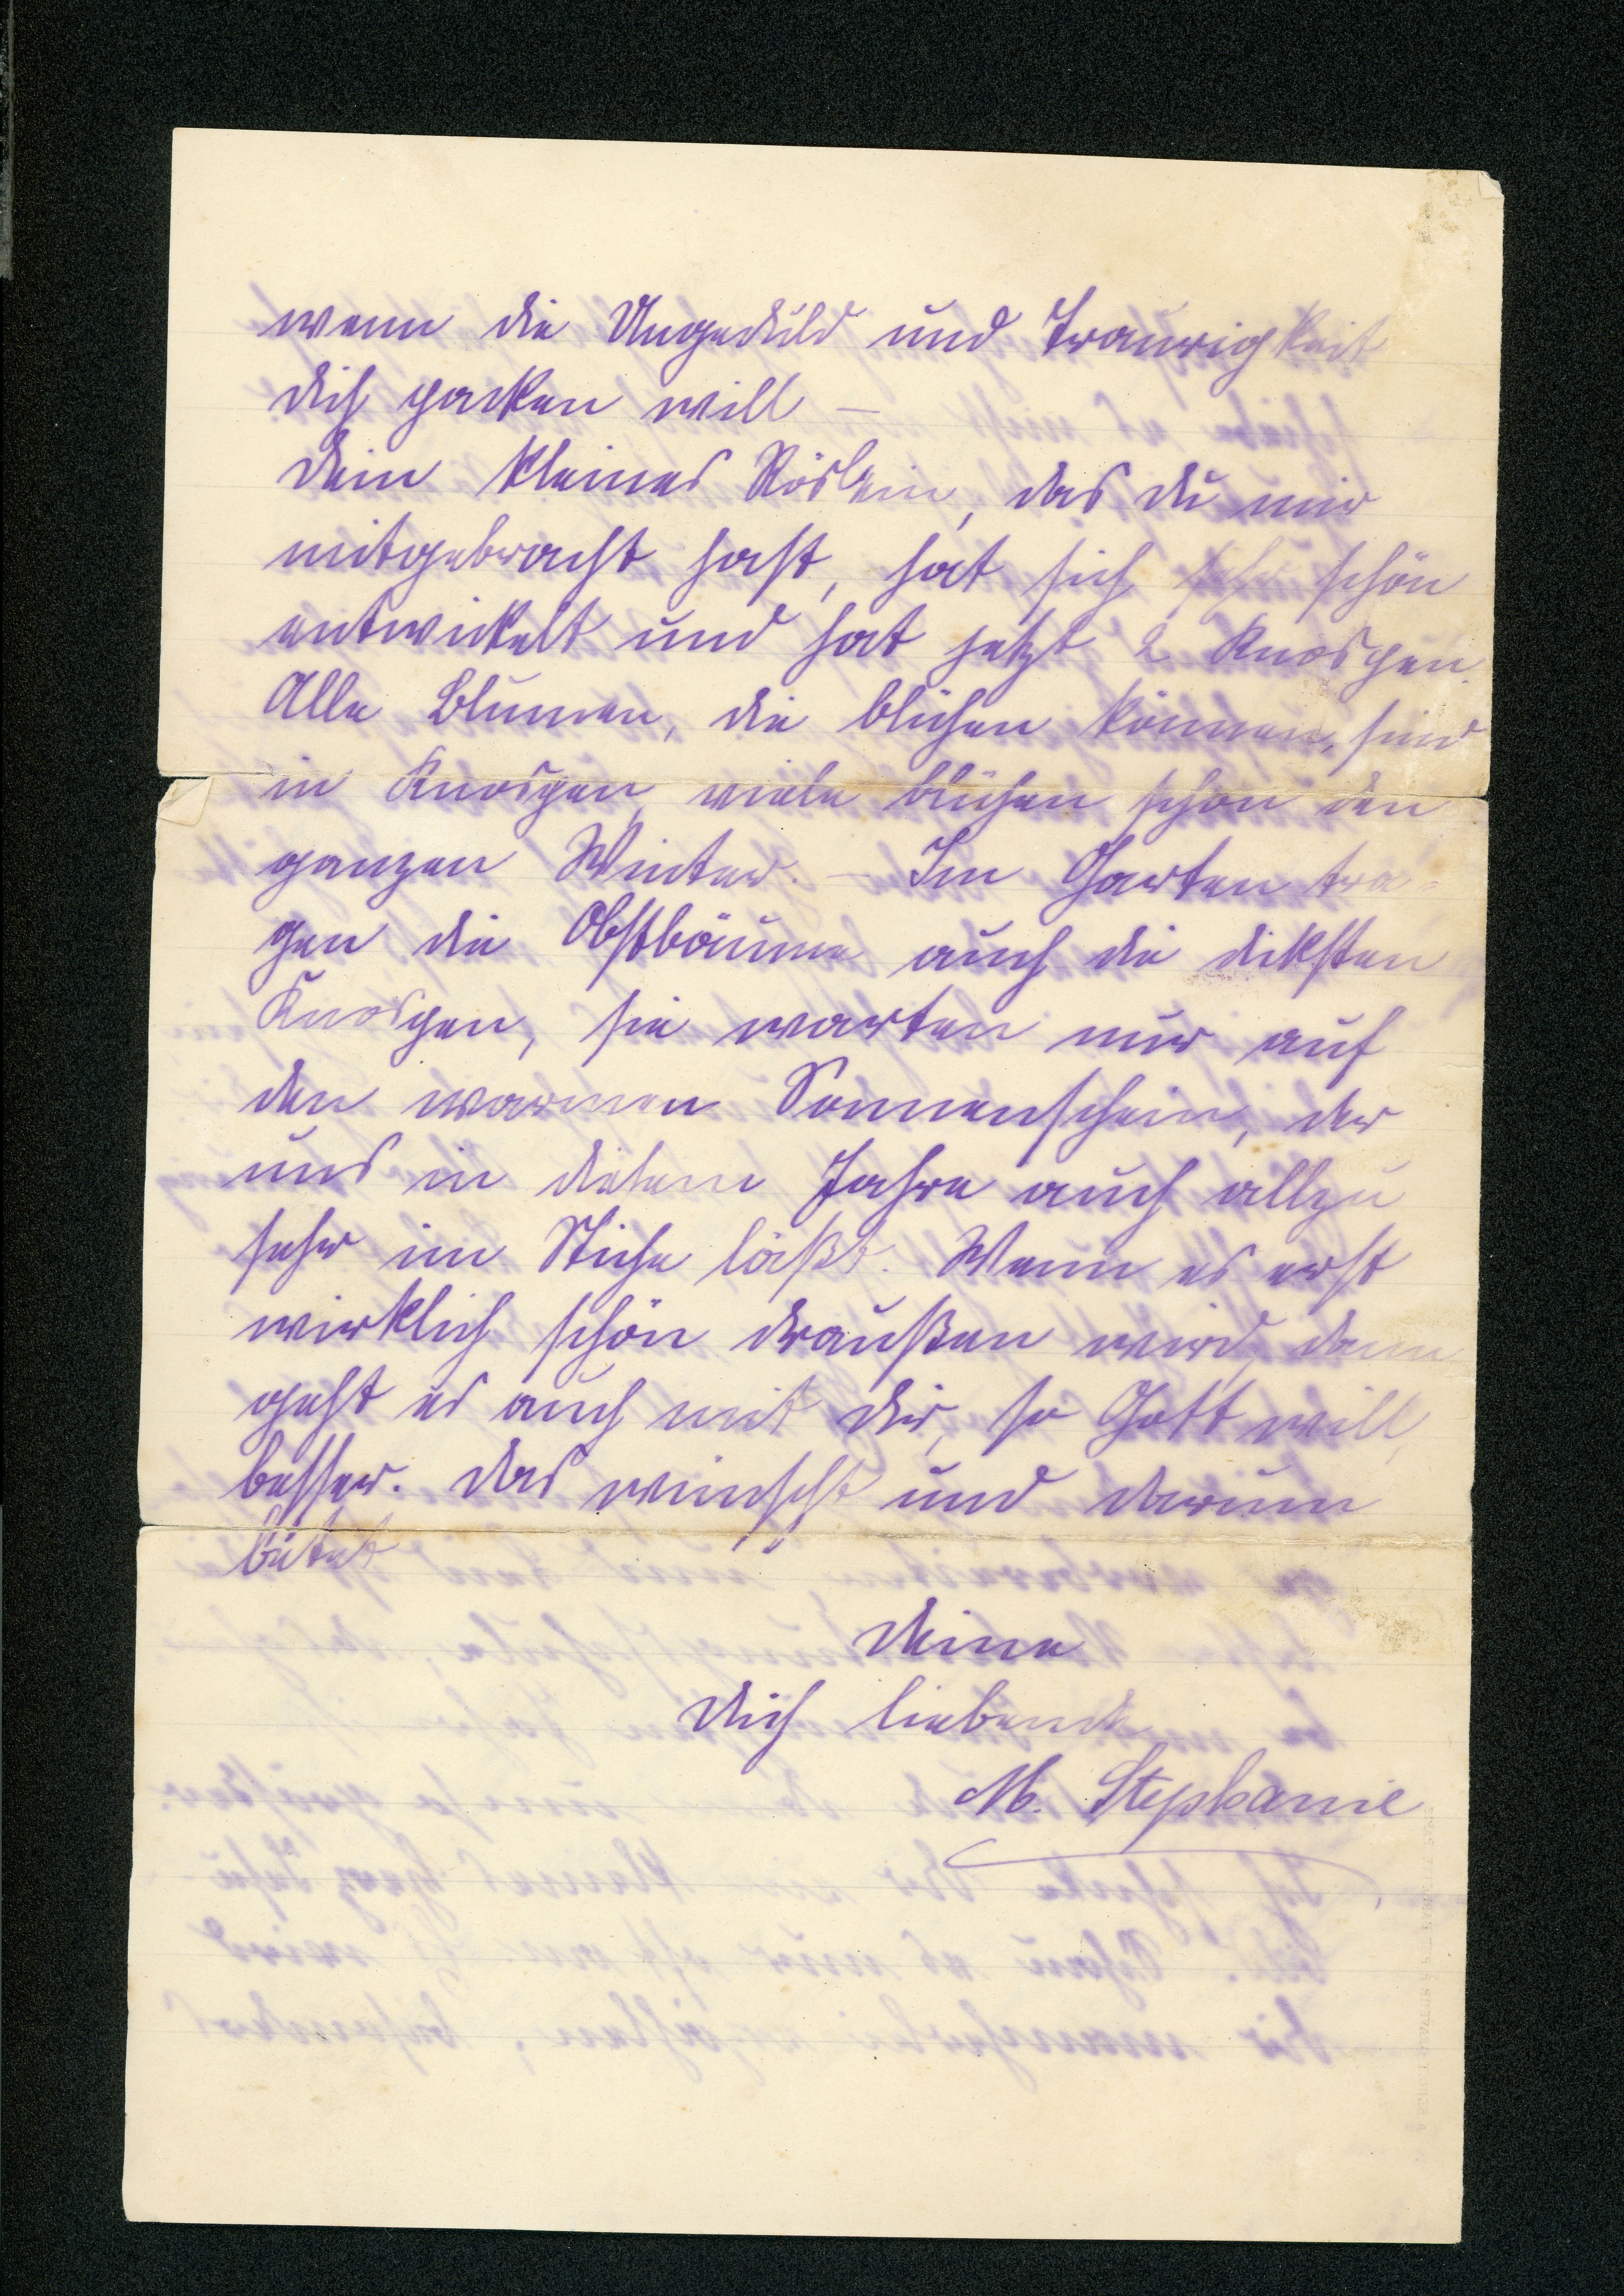 wenn die Ungeduld und Traurigkeit
dich packen will –
Dein kleines Röslein, das du mir
mitgebracht hast, hat sich sehr schön
entwickelt und hat jetzt 2 Knospen.
Alle Blumen, die blühen können, sind
in Knospen, viele blühen schon den
ganzen Winter. – Im Garten tra-
gen die Obstbäume auch die dicksten
Knospen, sie warten nur auf
den warmen Sonnenschein, der
uns in diesem Jahre auch allzu
sehr im Stiche läßt. Wenn es erst
wirklich schön draußen wird, dann
geht es auch mit dir, so Gott will,
besser. Das wünscht und darum
betet
Deine
Dich liebende
M. Stephanie